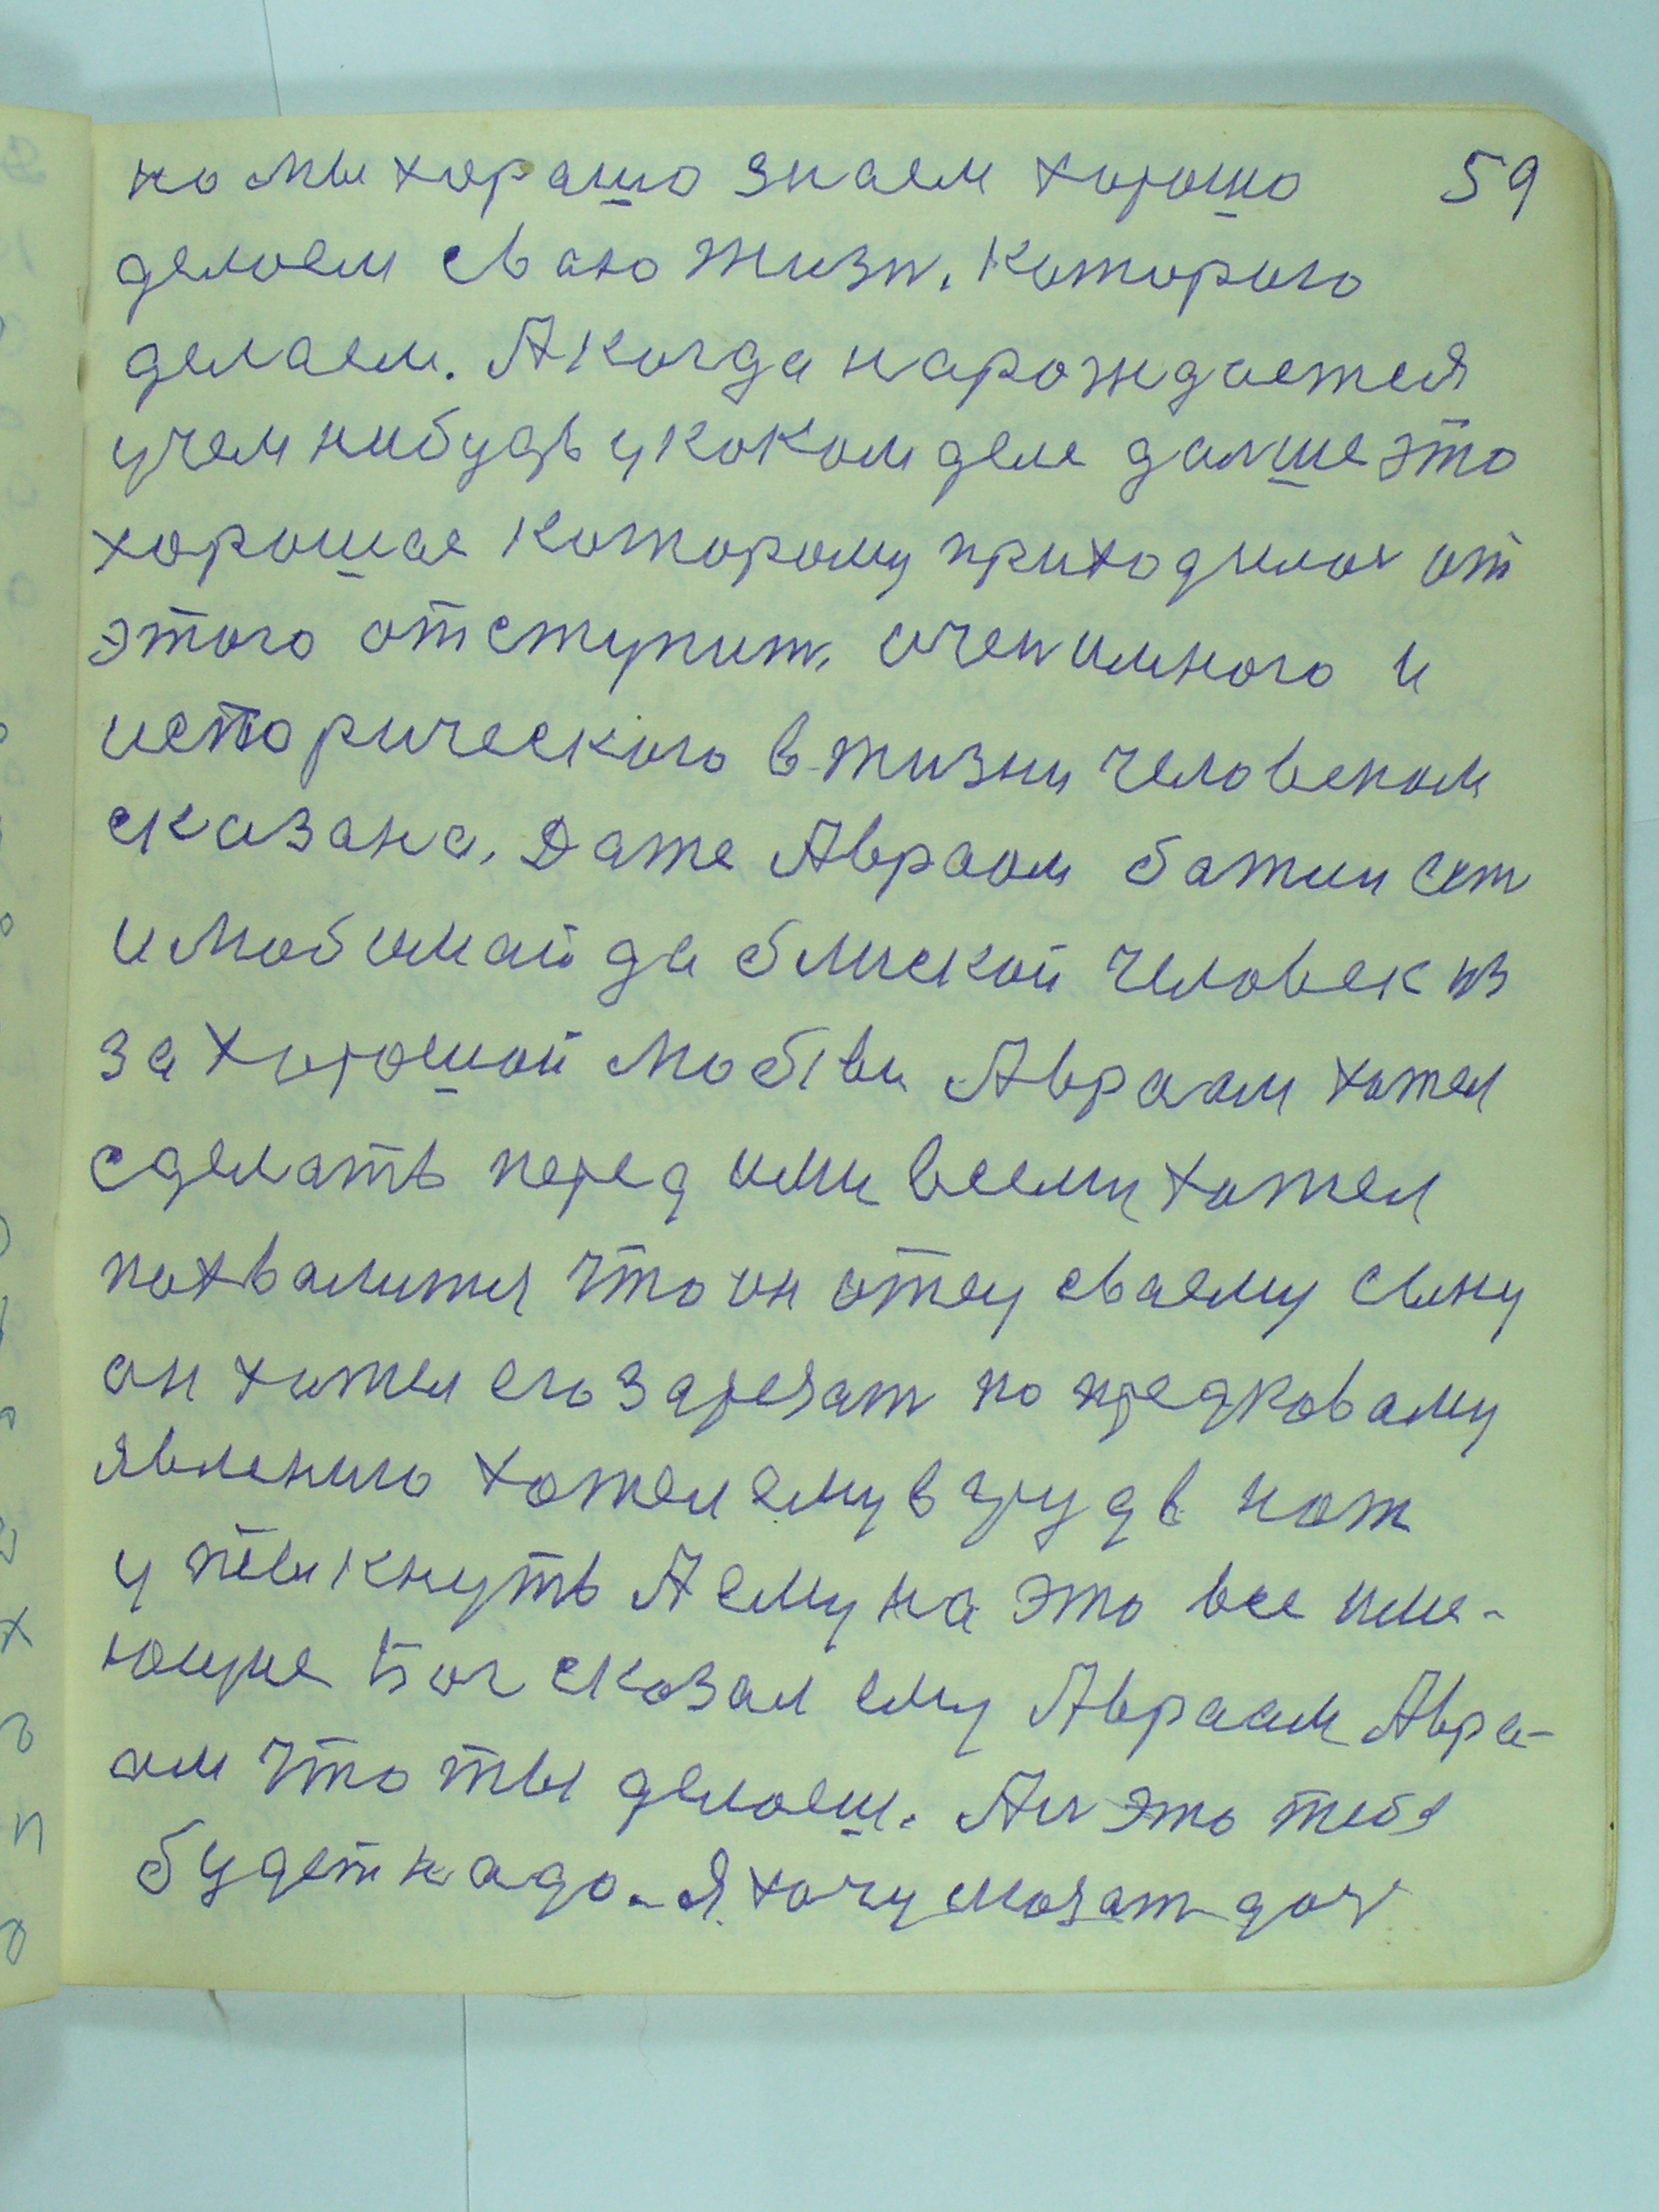 но мы хорашо знаем хорошо 59
делоем сваю жизн. Которого
делаем. А когда нарождается
у чем нибудь у коком деле далше это
хорошае которому приходилос от
этого отступит. очен имного и
исторического в жизни человеком
сказано. Даже Авраом бажии сат
и любимай да блиской человек из
за хорошой любви Авраам хотел
сделать перед ими всеми хотел
похвалится что он отец сваему сыну
он хотел его зарезат по предковаму
явлению хотел ему в грудь нож
упихнуть А ему на это все име-
ющие Бог сказал ему Авраам Авра-
ам что ты делоеш. Аль это тебе
будет надо. Я хочу сказат доч